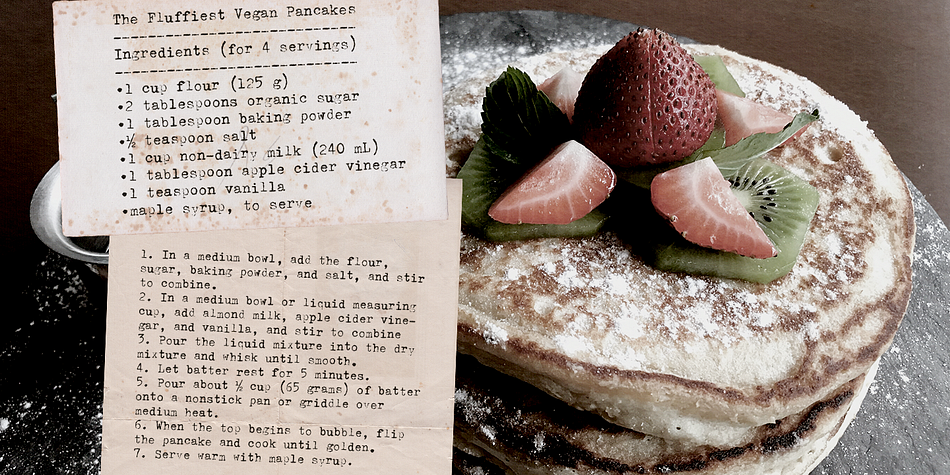 The Fluffiest Vegan Pancakes
Ingredients (for 4 servings)
•1 cup flour (125 g)
•2 tablespoons organic sugar
•1 tablespoon baking powder
•½ teaspoon salt
•1 cup non-dairy milk (240 mL)
•1 tablespoon apple cider vinegar
•1 teaspoon vanilla
•maple syrup, to serve
1. In a medium bowl, add the flour,
sugar, baking powder, and salt, and stir
to combine.
2. In a medium bowl or liquid measuring
cup, add almond milk, apple cider vine-
gar, and vanilla, and stir to combine
3. Pour the liquid mixture into the dry
mixture and whisk until smooth.
4. Let batter rest for 5 minutes.
5. Pour about ½ cup (65 grams) of batter
onto a nonstick pan or griddle over
medium heat.
6. When the top begins to bubble, flip
the pancake and cook until golden.
7. Serve warm with maple syrup.